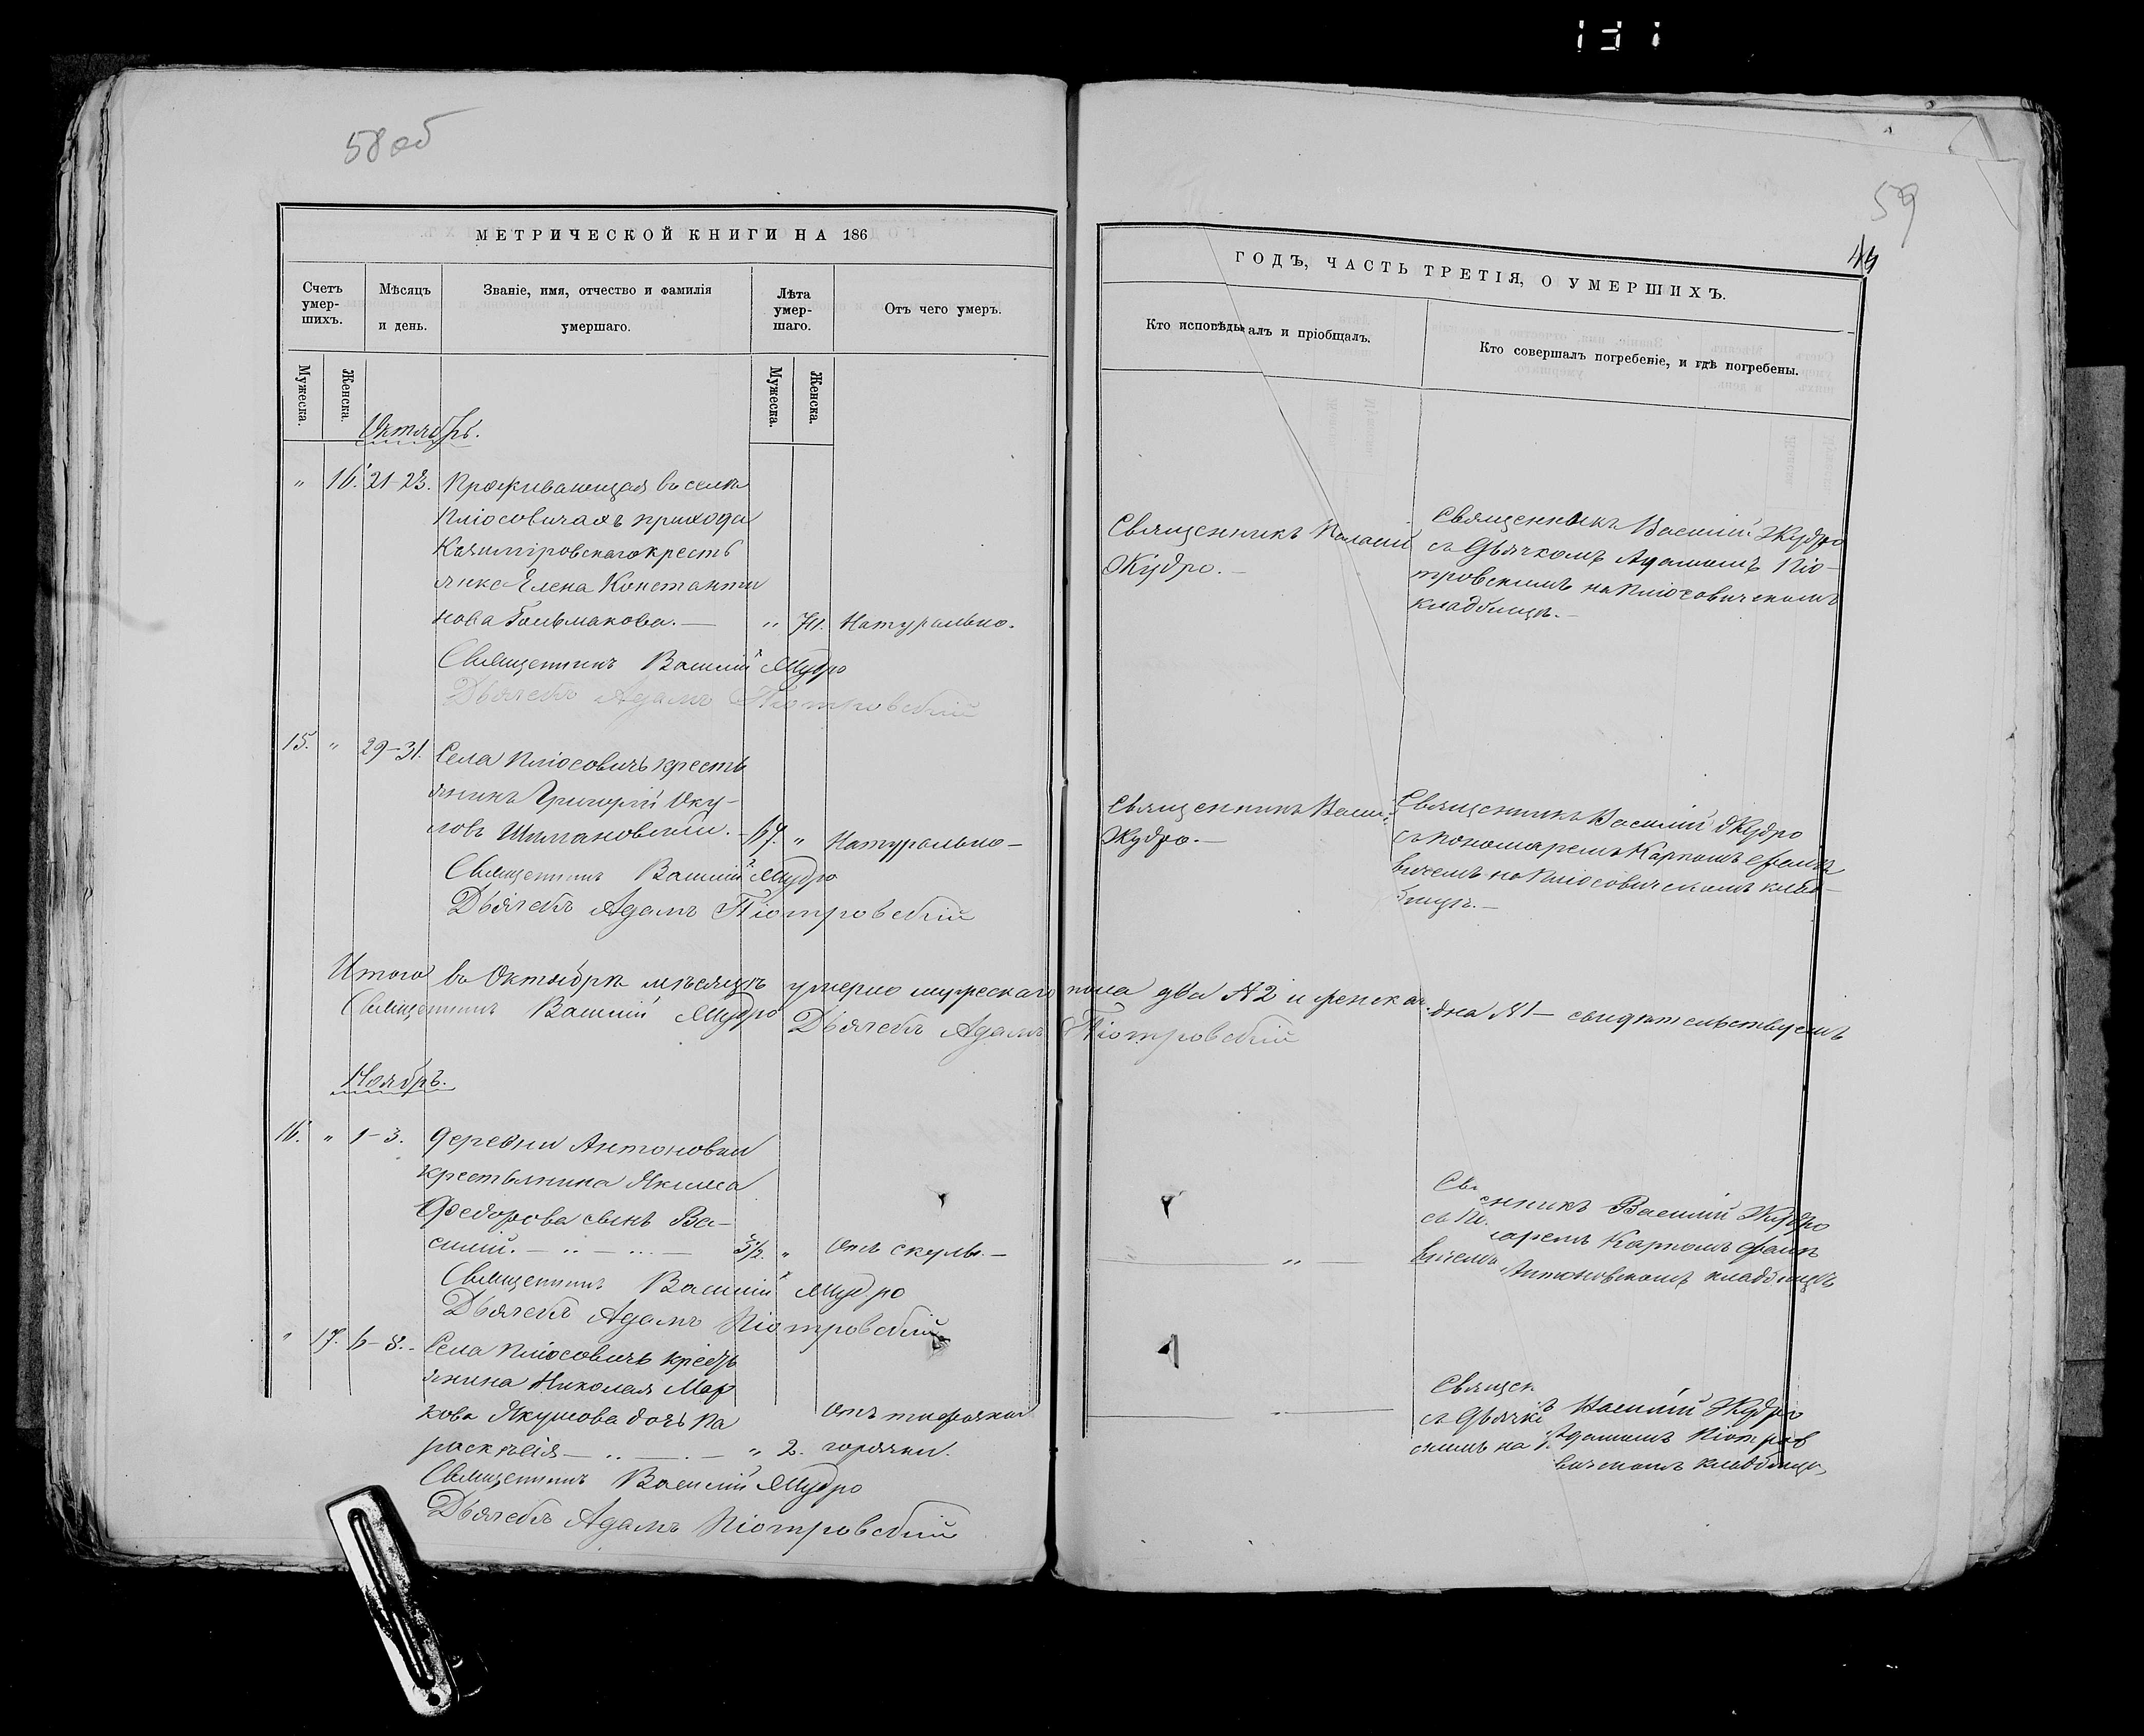 58 об
МЕТРИЧЕСКОЙ КНИГИ НА 186
Счетъ умер-шихъ.
Мѣсяцъ и день.
Званіе, имя, отчество и фамилія умершаго.
Лѣта умер-шаго.
Отъ чего умеръ.
Мужеска.
Женска.
Мужеска.
Женска.
Октябрь.
" 16. 21-23. Проживающая въ селѣ
Плюсовичахъ прихода
кресть
янка Елена Константи
нова . — " Натурально.
Священникъ Василій Жудро
Дьячекъ Адамъ Піотровскій
15. " 29-31. Села Плюсовичъ кресть
янинъ Григорій Оку-
ловъ Шимановскій. — 67. " Натурально —
Священникъ Василій Жудро
Дьячекъ Адамъ Піотровскій
Итого въ Октябрѣ мѣсяцѣ умерло мужескаго пола два № 2 и женска одна № 1 — свидѣтельствуемъ
Священникъ Василій Жудро Дьячекъ Адамъ Піотровскій
Ноябрь.
16. " 1-3. Деревни Антоновки
крестьянина Якима
Федорова сынъ Ва-
силій. — " — 3½. "
Священникъ Василій Жудро
Дьячекъ Адамъ Піотровскій
" 17. 6-8. Села Плюсовичъ кресть
янина Николая Мар
кова Якушова дочь Па
раскевія — " — " 2. горячки.
Священникъ Василій Жудро
Дьячекъ Адамъ Піотровскій
59
44
ГОДЪ, ЧАСТЬ ТРЕТІЯ, О УМЕРШИХЪ.
Кто исповѣдывалъ и пріобщалъ.
Кто совершалъ погребеніе, и гдѣ погребены.
Священникъ Василій
Жудро. —
Священникъ Василій Жудро
съ Дьячкомъ Адамомъ Піо-
тровскимъ на Плюсовичскомъ
кладбищѣ. —
Священникъ Васил.
Жудро. —
Священникъ Василій Жудро
съ пономаремъ Карпомъ
вичемъ на Плюсовичскомъ клад-
бищѣ. —
енникъ Василій Жудро
аремъ Карпомъ
Антоновскомъ кладбищѣ
— " —
Священ ъ Василій Жудро
съ Дьячк Адамомъ Піотров
скимъ на
вичскомъ кладбищѣ